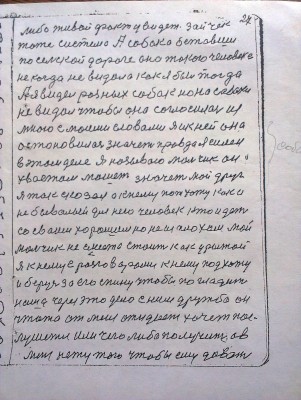 24
либо живой факт увидет. зайчёк
тоже система А собака оставшии
по селской дороге она такого человека
не когда не видела как я был тогда
А я видел разных собак но на словах
не видал чтобы она согласилась из
мною с моими словами я к ней она
остоновилась значеть правда я силен
в этом деле Я называю малчик он
хвастом машет значет мой друг
я так сказал а к нему подхожу как и
не бывалый для него человек кто идет
со своим хорошим но не плохим мой
малчик не стоит как
я к нему с разговарами к нему подхожу
и беру за его спину чтобы погладит
нам а через это дело с ним дружба он
что то от мен ожидает хочет пос
лушити или чего либо получить. ов
мен нету того чтобы ему доват